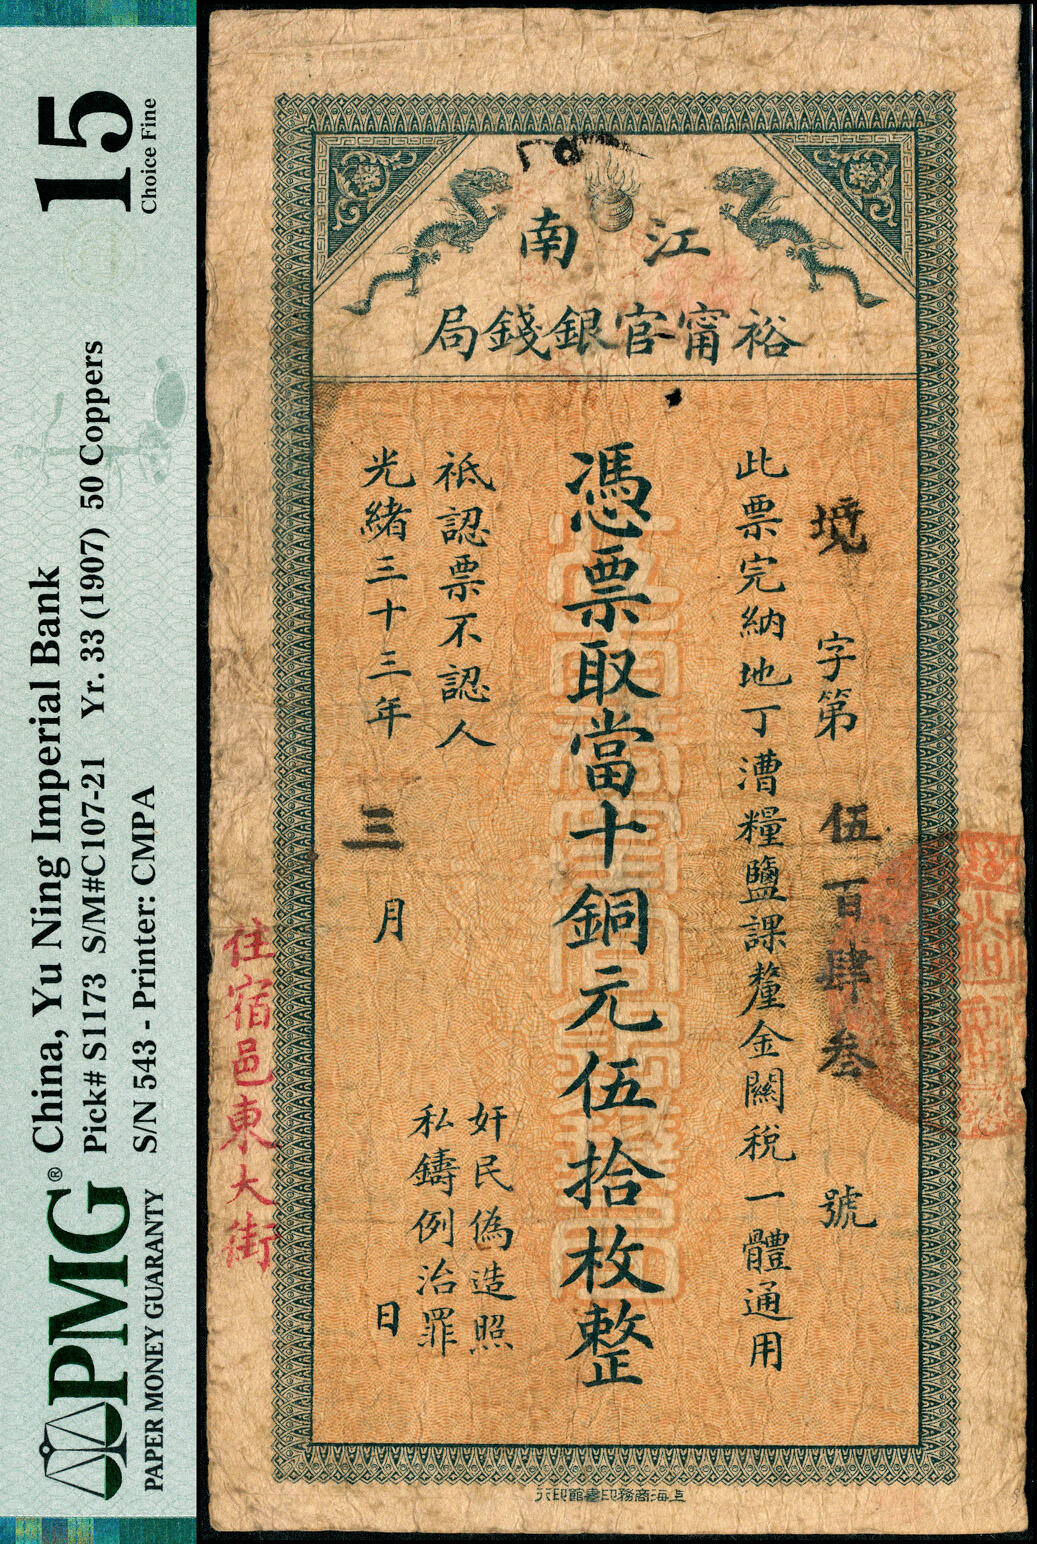 PMG®
PAPER MONEY GUARANTY
China, Yu Ning Imperial Bank
Pick# S1173 S/M#C107-21 Yr. 33 (1907) 50 Coppers
S/N 543 - Printer: CMPA
15
Choice Fine
江南
裕甯官銀錢局
字第伍百肆叁號
此票完納地丁漕糧鹽課釐金關稅一體通用
憑票取當十銅元伍拾枚整
祗認票不認人
奸民偽造照
私鑄例治罪
光緒三十三年三月日
住宿邑東大街
上海商務印書館印行